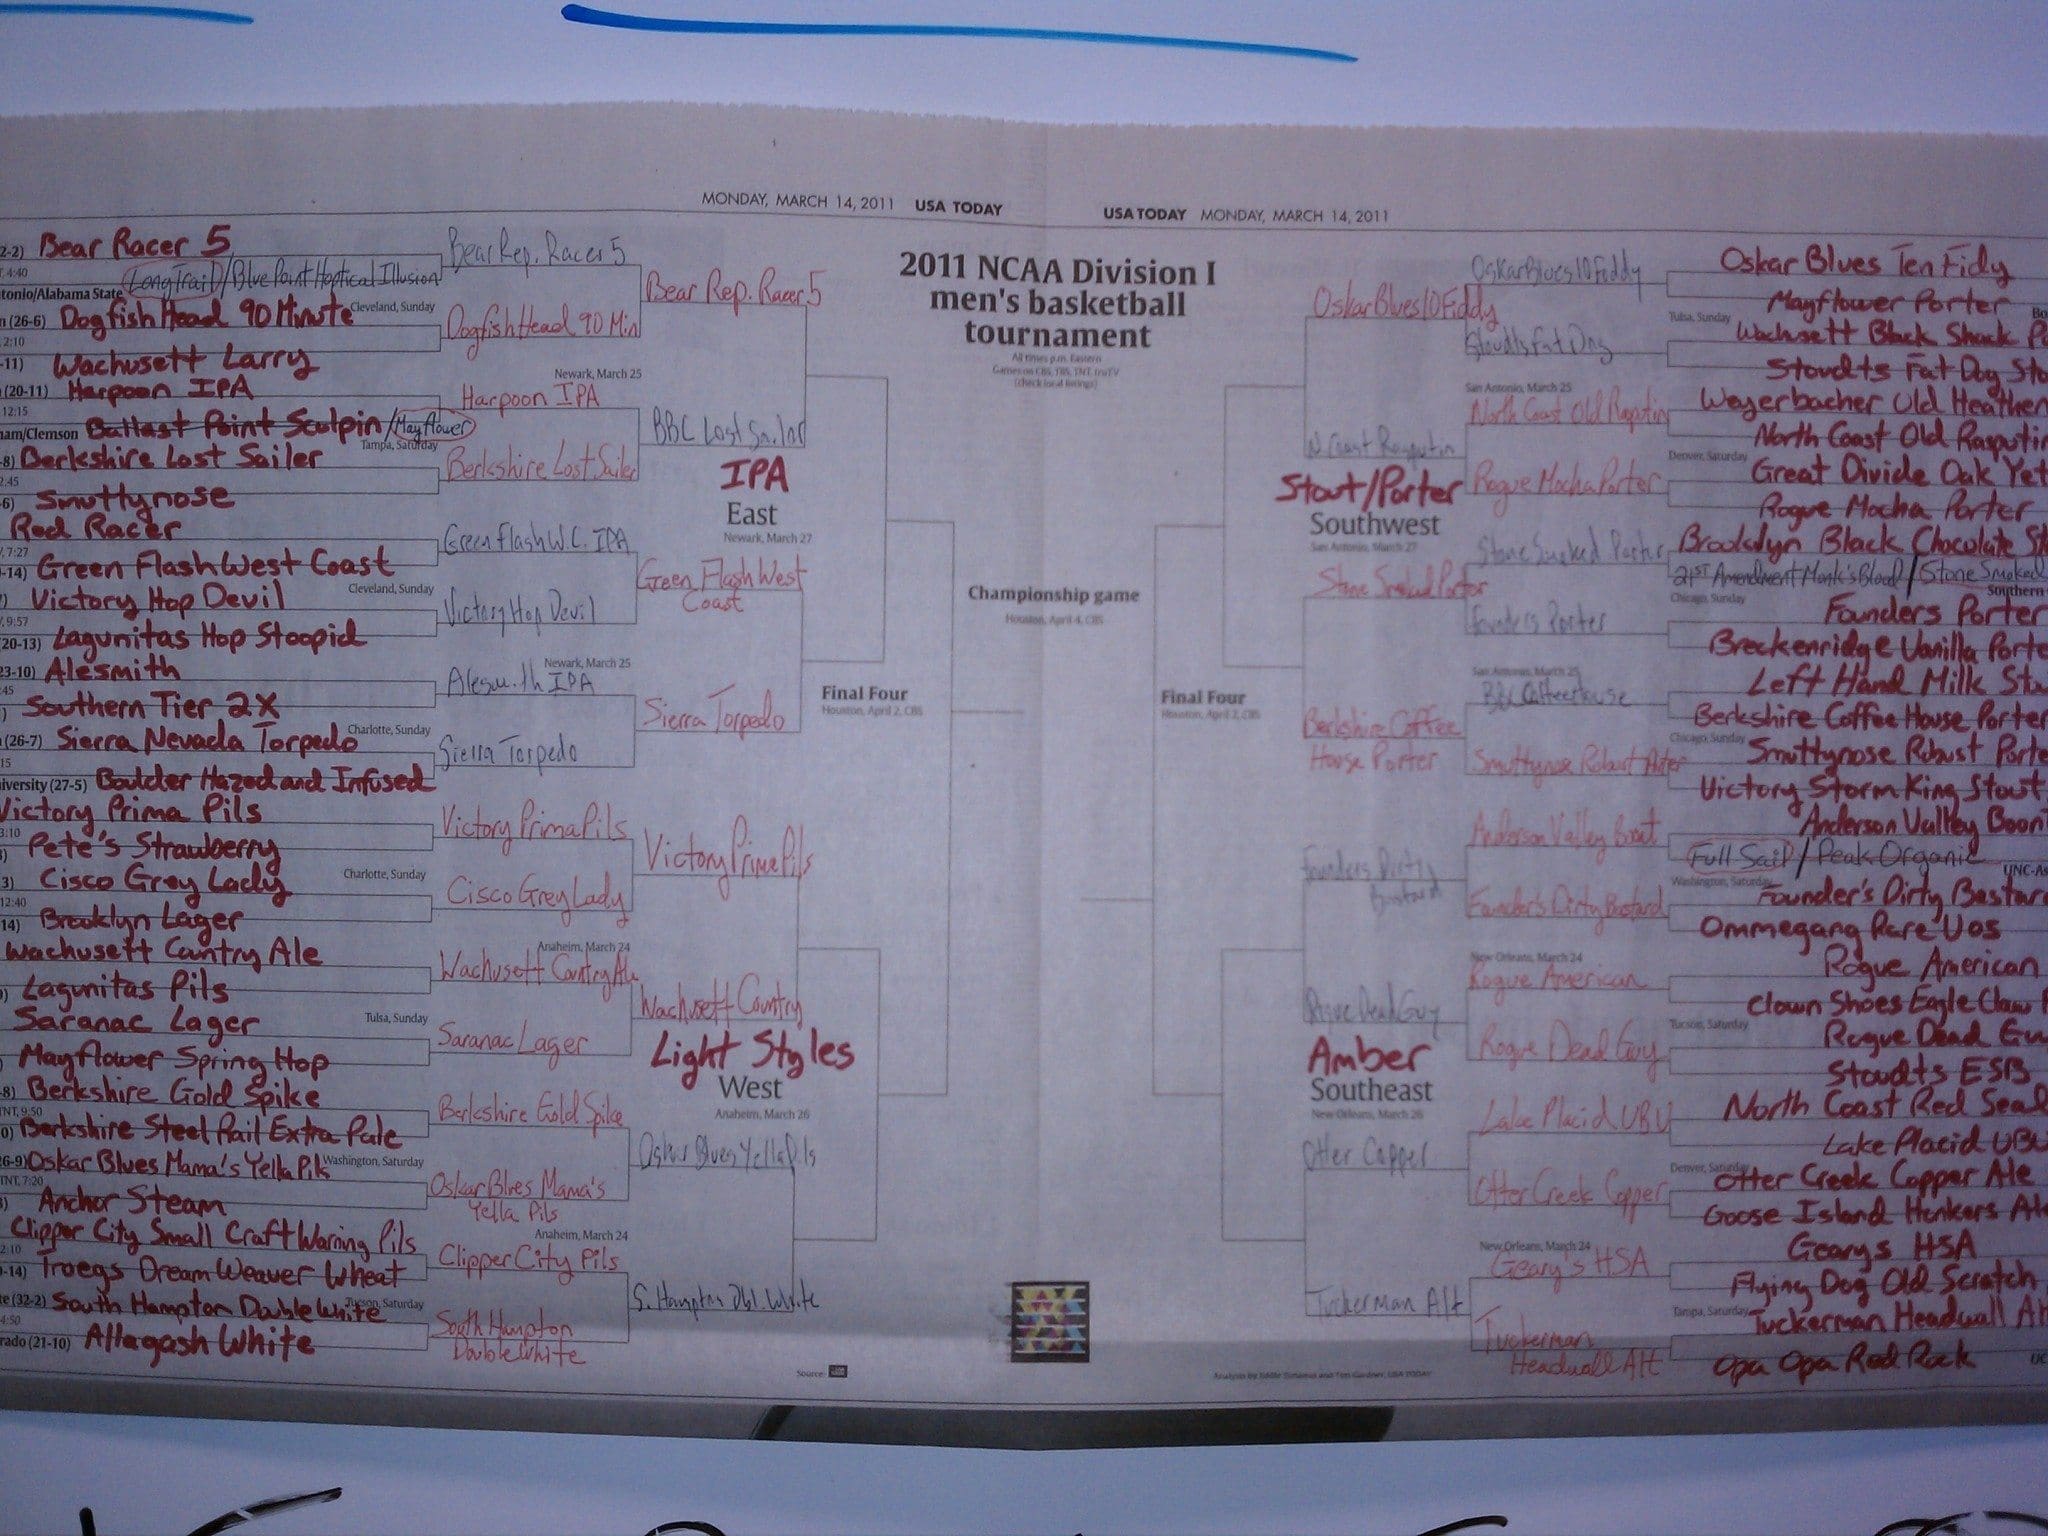 MONDAY, MARCH 14, 2011 USA TODAY
USA TODAY MONDAY, MARCH 14, 2011
2011 NCAA Division I
men's basketball
tournament
All times p.m. Eastern
Games on CBS, TBS, TNT, truTV
(check local listings)
2-2) Bear Racer 5
4:40
Long Trail/Blue Point Hoptical Illusion
tonio/Alabama State
Cleveland, Sunday
(26-6) Dogfish Head 90 Minute
2:10
-11) Wachusett Larry
(20-11) Harpoon IPA
12:15
Ballast Point Sculpin/Mayflower
ham/Clemson
Tampa, Saturday
-8) Berkshire Lost Sailer
2:45
-6) Smuttynose
Red Racer
7:27
-14) Green Flash West Coast
Cleveland, Sunday
) Victory Hop Devil
9:57
(20-13) Lagunitas Hop Stoopid
23-10) Alesmith
:45
) Southern Tier 2X
Charlotte, Sunday
(26-7) Sierra Nevada Torpedo
15
iversity (27-5) Boulder Hazed and Infused
Victory Prima Pils
3:10
) Pete's Strawberry
Charlotte, Sunday
3) Cisco Grey Lady
12:40
14) Brooklyn Lager
Wachusett Cantry Ale
) Lagunitas Pils
Tulsa, Sunday
Saranac Lager
Mayflower Spring Hop
-8) Berkshire Gold Spike
TNT, 9:50
0) Berkshire Steel Rail Extra Pale
Washington, Saturday
26-9) Oskar Blues Mama's Yella Pils
TNT, 7:20
) Anchor Steam
Clipper City Small Craft Warning Pils
2:10
-14) Troegs Dream Weaver Wheat
Tucson, Saturday
te (32-2) South Hampton Double White
4:50
rado (21-10) Allagash White
Bear Rep. Racer 5
Dogfish Head 90 Min
Newark, March 25
Harpoon IPA
Berkshire Lost Sailer
Green Flash W.C. IPA
Victory Hop Devil
Newark, March 25
Alesmith IPA
Sierra Torpedo
Victory Prima Pils
Cisco Grey Lady
Anaheim, March 24
Wachusett Country Ale
Saranac Lager
Berkshire Gold Spike
Oskar Blues Mama's
Yella Pils
Anaheim, March 24
Clipper City Pils
South Hampton
Double White
Bear Rep. Racer 5
BBC Lost Sailer
IPA
East
Newark, March 27
Green Flash West
Coast
Sierra Torpedo
Victory Prima Pils
Wachusett Country
Light Styles
West
Anaheim, March 26
Oskar Blues Yella Pils
S. Hampton Dbl. White
Source
Final Four
Houston, April 2, CBS
Championship game
Houston, April 4, CBS
Final Four
Houston, April 2, CBS
Oskar Blues 10 Fiddy
N. Coast Rasputin
Stout/Porter
Southwest
San Antonio, March 27
Stone Smoked Porter
Berkshire Coffee
House Porter
Founders Dirty
Bastard
Rogue Dead Guy
Amber
Southeast
New Orleans, March 26
Otter Copper
Tuckerman Alt
Oskar Blues 10 Fiddy
Stoudts Fat Dog
San Antonio, March 25
North Coast Old Rasputin
Rogue Mocha Porter
Stone Smoked Porter
Founders Porter
San Antonio, March 25
BBC Coffeehouse
Smuttynose Robust Porter
Anderson Valley Boont
Founder's Dirty Bastard
New Orleans, March 24
Rogue American
Rogue Dead Guy
Lake Placid UBU
Otter Creek Copper
New Orleans, March 24
Geary's HSA
Tuckerman
Headwall Alt
Oskar Blues Ten Fidy
Mayflower Porter
Bo
Tulsa, Sunday
Wachusett Black Shack Po
Stoudts Fat Dog Sto
Weyerbacher Old Heathen
North Coast Old Rasputin
Denver, Saturday
Great Divide Oak Yet
Rogue Mocha Porter
Brooklyn Black Chocolate St
21st Amendment Monk's Blood/Stone Smoked
Southern
Chicago, Sunday
Founders Porter
Breckenridge Vanilla Porte
Left Hand Milk Sto
Berkshire Coffee House Porter
Chicago, Sunday
Smuttynose Robust Porte
Victory Storm King Stout
Anderson Valley Boont
Full Sail/Peak Organic
UNC-As
Washington, Saturday
Founder's Dirty Bastard
Ommegang Rare Vos
Rogue American
Clown Shoes Eagle Claw
Tucson, Saturday
Rogue Dead Gu
Stoudts ESB
North Coast Red Seal
Lake Placid UBU
Denver, Saturday
Otter Creek Copper Ale
Goose Island Honkers Ale
Gearys HSA
Flying Dog Old Scratch
Tampa, Saturday
Tuckerman Headwall Alt
Opa Opa Red Rock
UC